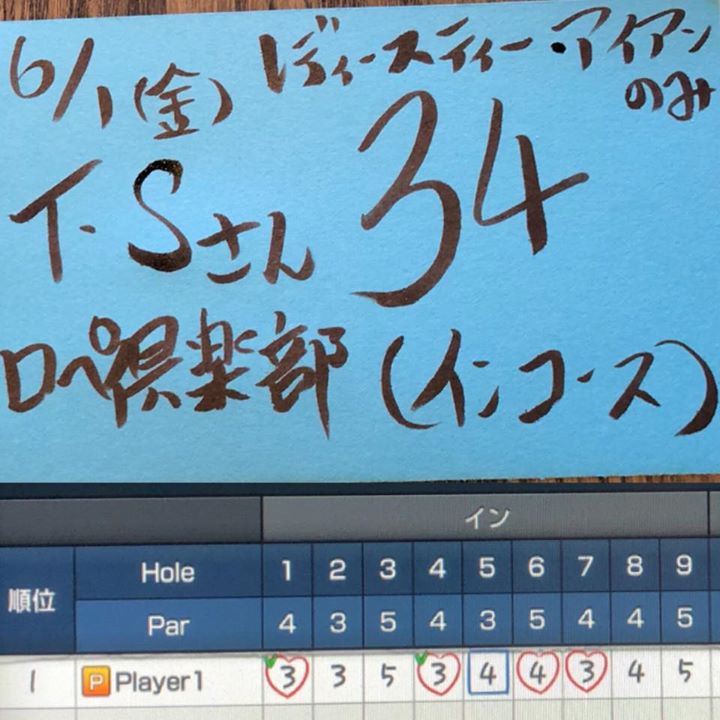 6/1(金) レディースティー・アイアン
のみ
T・Sさん 34
ロペ倶楽部 (インコース)
イン
順位 Hole 1 2 3 4 5 6 7 8 9
Par 4 3 5 4 3 5 4 4 5
1 P Player1 3 3 5 3 4 4 3 4 5